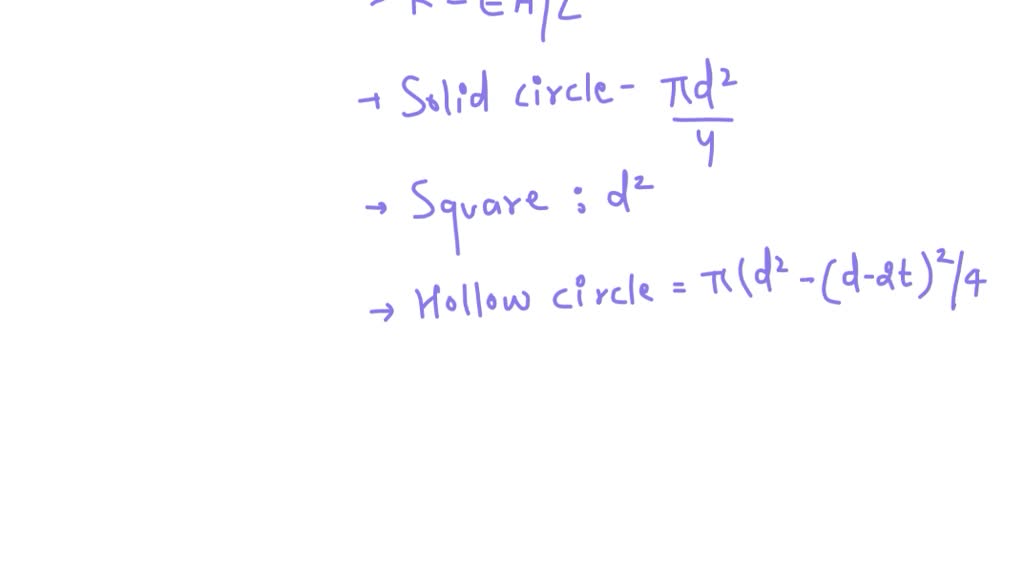 → K = EA/L
→ Solid circle - πd²/4
→ Square : d²
→ Hollow circle = π(d² - (d-2t)²/4